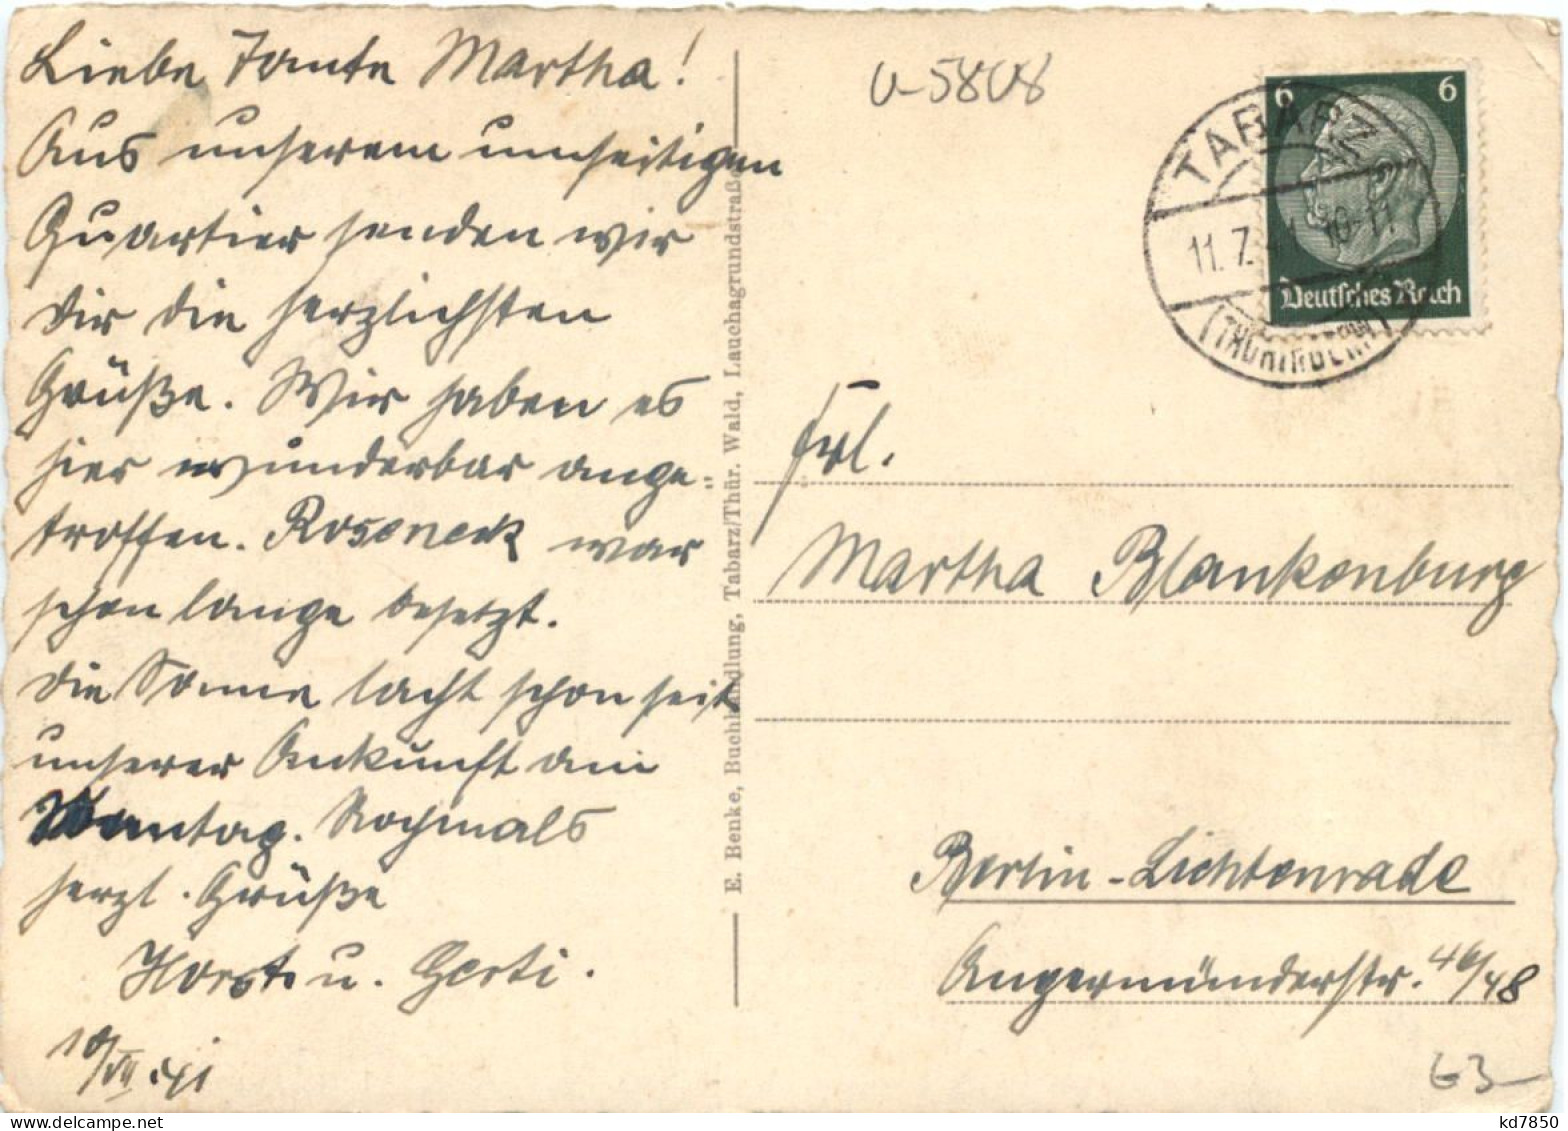 Liebe Tante Martha!
Aus unserem umseitigen
Quartier senden wir
Dir die herzlichsten
Grüße. Wir haben es
hier wunderbar ange-
troffen. Roseneck war
schon lange besetzt.
Die Sonne lacht schon seit
unserer Ankunft am
Montag. Nochmals
herzl. Grüße
Horst u. Gerti.
10/VII 41
E. Benke, Buchhandlung, Tabarz/Thür. Wald, Lauchagrundstraße
U-5808
6 6
Deutsches Reich
TABARZ
11.7. 10-11
(THÜRINGERW)
Frl.
Martha Blankenburg
Berlin-Lichtenrade
Angermünderstr. 46/48
63-
kd7850